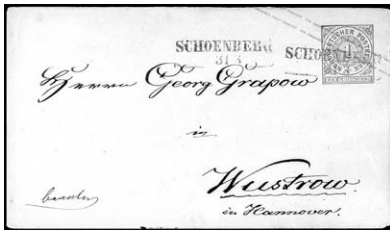 SCHOENBERG
31 3
SCHOENBE
EIN GROSCHEN
Herrn Georg Grapow
in
Wustrow
in Hannover.